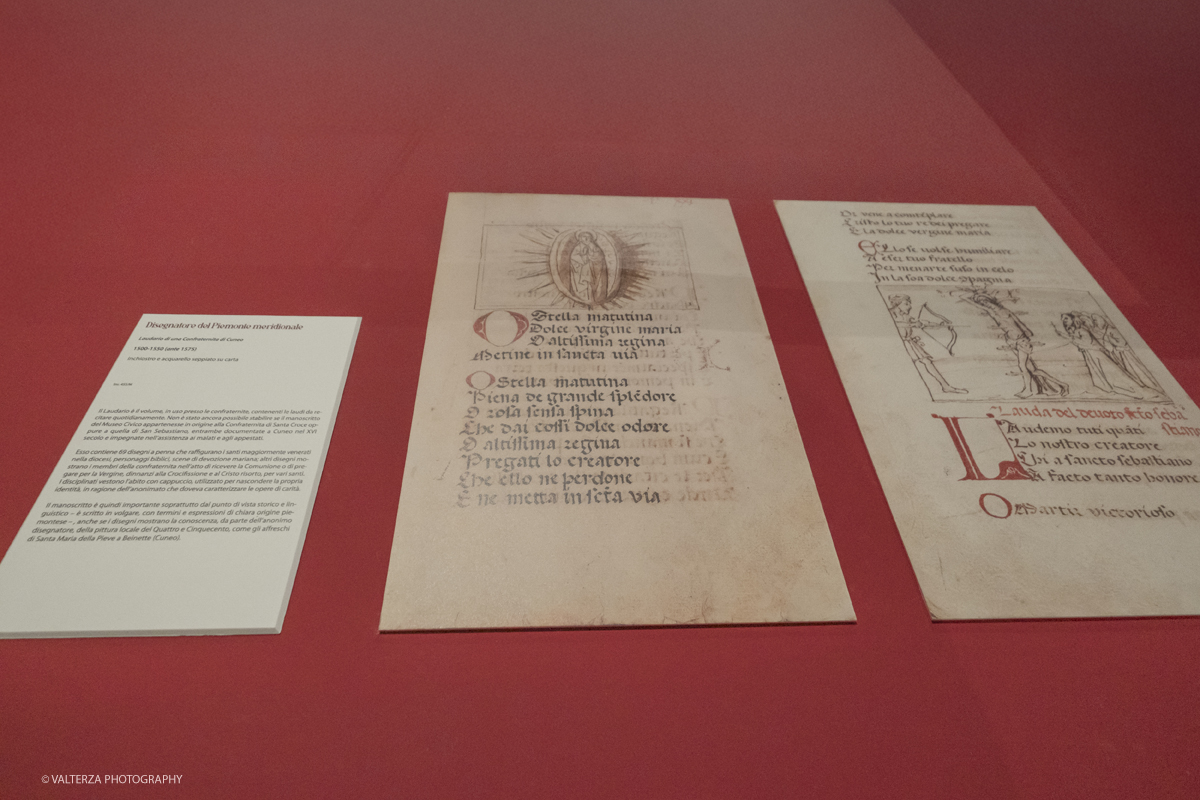 Disegnatore del Piemonte meridionale
Laudario di una Confraternita di Cuneo
1500-1550 (ante 1575)
Inchiostro e acquarello seppiato su carta
Il Laudario è il volume, in uso presso le confraternite, contenenti le laudi da re-
citare quotidianamente. Non è stato ancora possibile stabilire se il manoscritto
del Museo Civico appartenesse in origine alla Confraternita di Santa Croce op-
pure a quella di San Sebastiano, entrambe documentate a Cuneo nel XVI
secolo e impegnate nell'assistenza ai malati e agli appestati.
Esso contiene 69 disegni a penna che raffigurano i santi maggiormente venerati
nella diocesi, personaggi biblici, scene di devozione mariana; altri disegni mo-
strano i membri della confraternita nell'atto di ricevere la Comunione o di pre-
gare per la Vergine, dinnanzi alla Crocifissione e al Cristo risorto, per vari santi.
I disciplinati vestono l'abito con cappuccio, utilizzato per nascondere la propria
identità, in ragione dell'anonimato che doveva caratterizzare le opere di carità.
Il manoscritto è quindi importante soprattutto dal punto di vista storico e lin-
guistico – è scritto in volgare, con termini e espressioni di chiara origine pie-
montese – , anche se i disegni mostrano la conoscenza, da parte dell'anonimo
disegnatore, della pittura locale del Quattro e Cinquecento, come gli affreschi
di Santa Maria della Pieve a Beinette (Cuneo).
O Stella matutina
Dolce virgine maria
O altissima regina
Metine in sancta via
O Stella matutina
Piena de grande splēdore
O rosa sensa spina
Che dai cossi dolce odore
O altissima regina
Pregati lo creatore
Che ello ne perdone
E ne metta in sctā via
Or vene a contēplare
lo tuo re dei pregare
E la dolce vergine maria
lo se volse humiliare
A esser tuo fratello
Per menarte suso in celo
In la soa dolce
Lauda del devoto scto seba
stiano
Laudemo tuti quāti
Lo nostro creatore
Chi a sancto sebastiano
A facto tanto honore
O Martir victorioso
© VALTERZA PHOTOGRAPHY